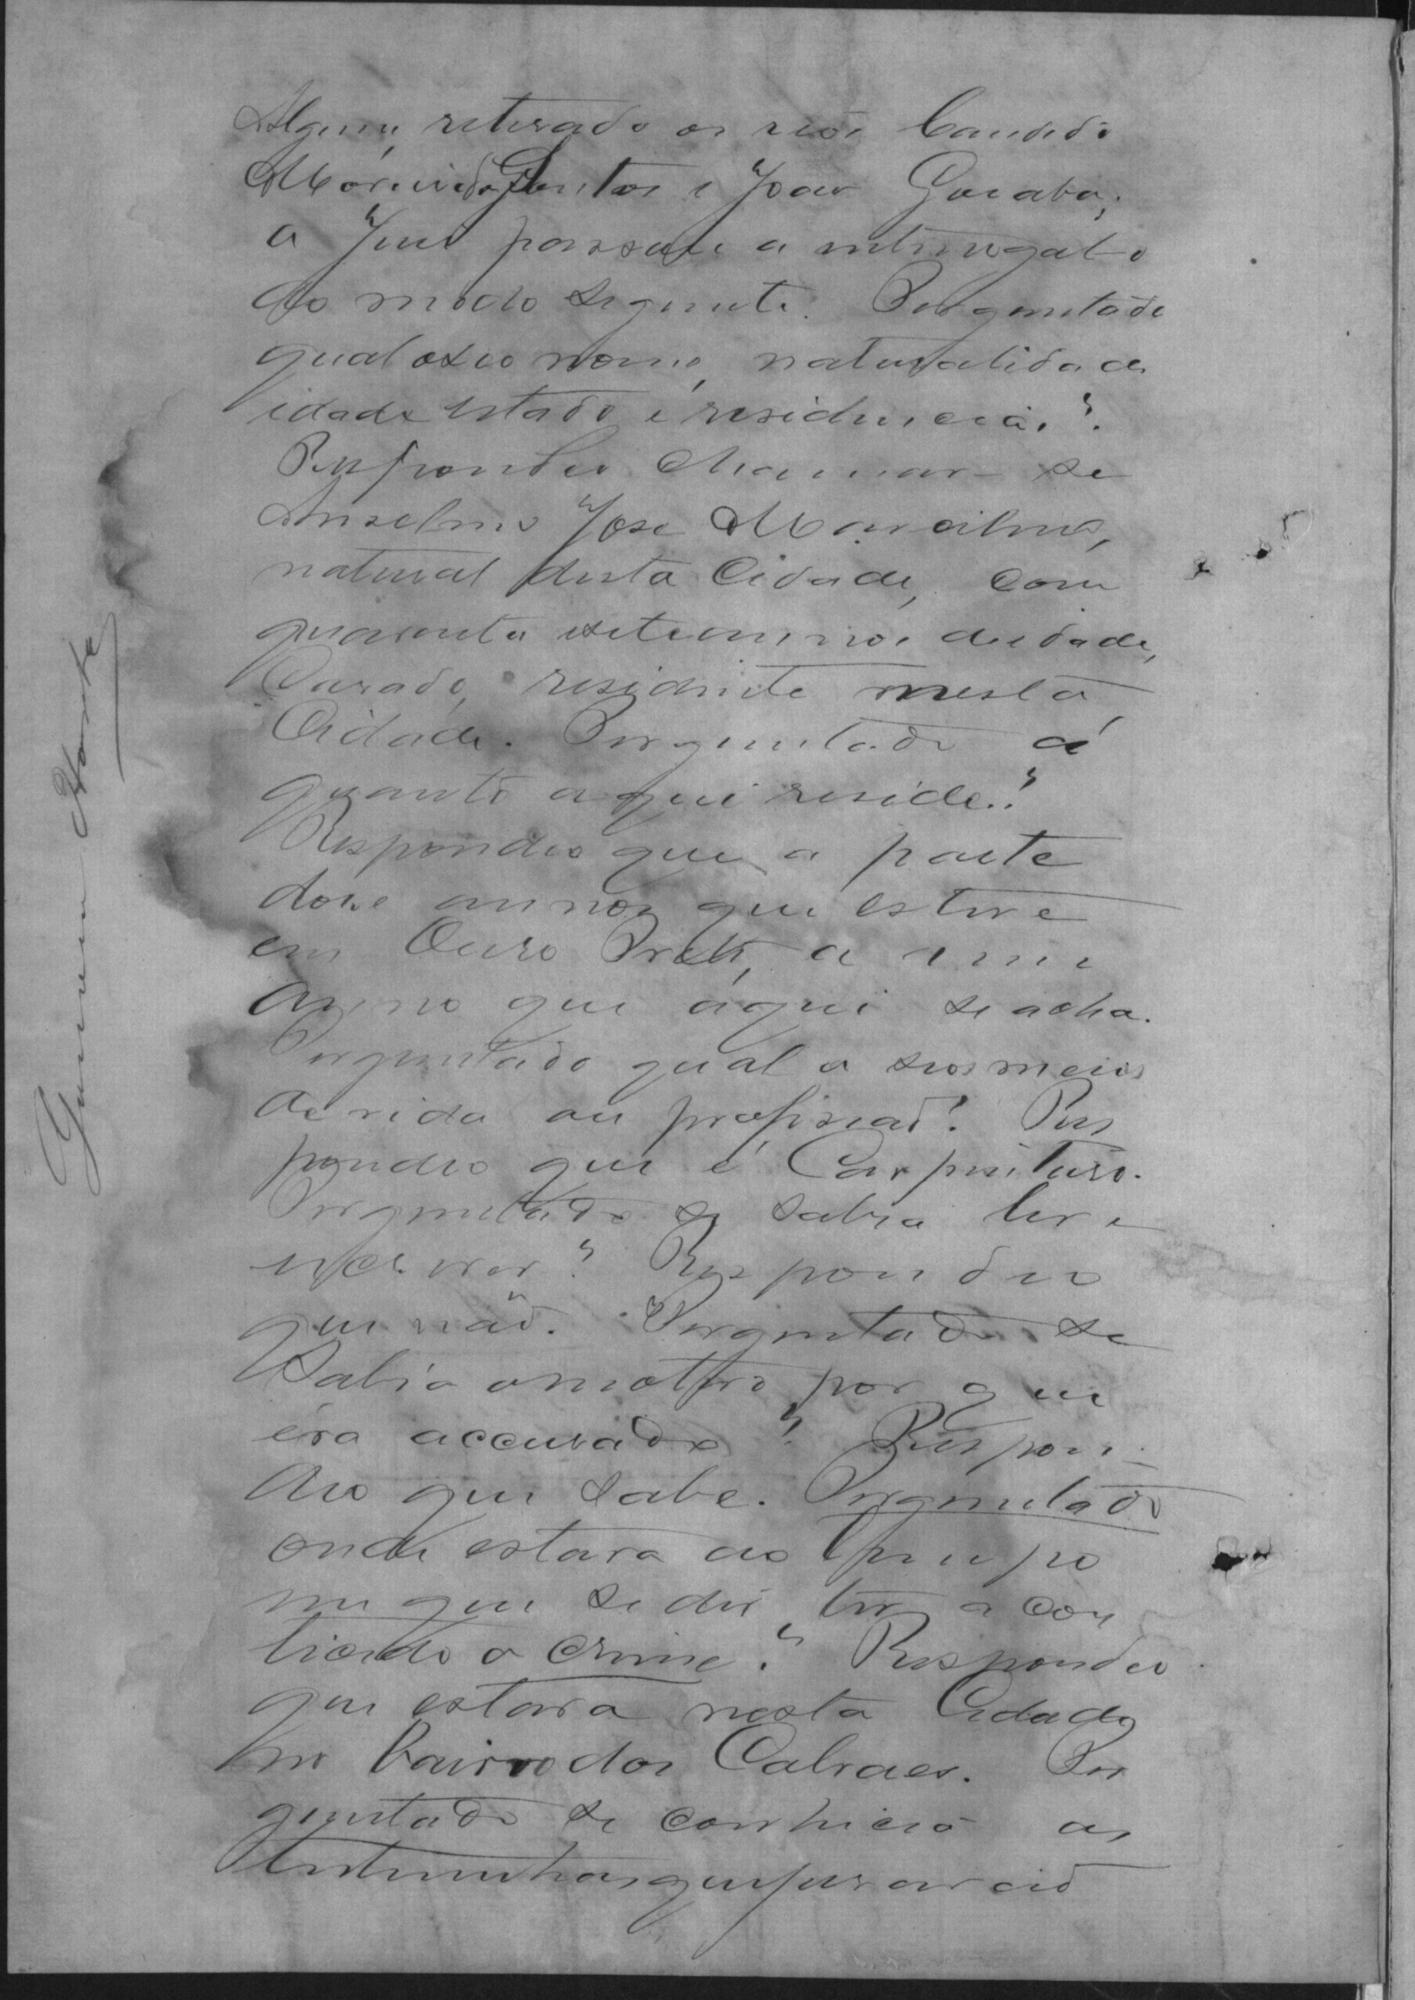 Algum, retirado os réos Candido
dos Santos e João
o Juis passou a interrogal-o
do modo seguinte. Perguntado
qual o seu nome, naturalidade
idade estado e residencia?
Respondeo chamar-se
Anselmo José Marcelino,
natural desta Cidade, com
quarenta e sete annos de idade,
Casado, residente nesta
Cidade. Perguntado á
quanto aqui reside?
Respondeo que a parte
dose annos que esteve
em Ouro Preto, a um
anno que aqui se acha.
Perguntado qual o seos meios
de vida ou profissão? Res
pondeo que é Carpinteiro.
Perguntado se sabia ler e
escrever? Respondeo
que não. Perguntado se
Sabia o motivo por que
éra accusado? Respon-
deo que sabe. Perguntado
onde estava ao tempo
em que se diz ter acon
tecido o crime? Respondeo
que estava nesta Cidade
no bairro dos Cabraes. Per
guntado se conhecia as
testemunhas que jurarão